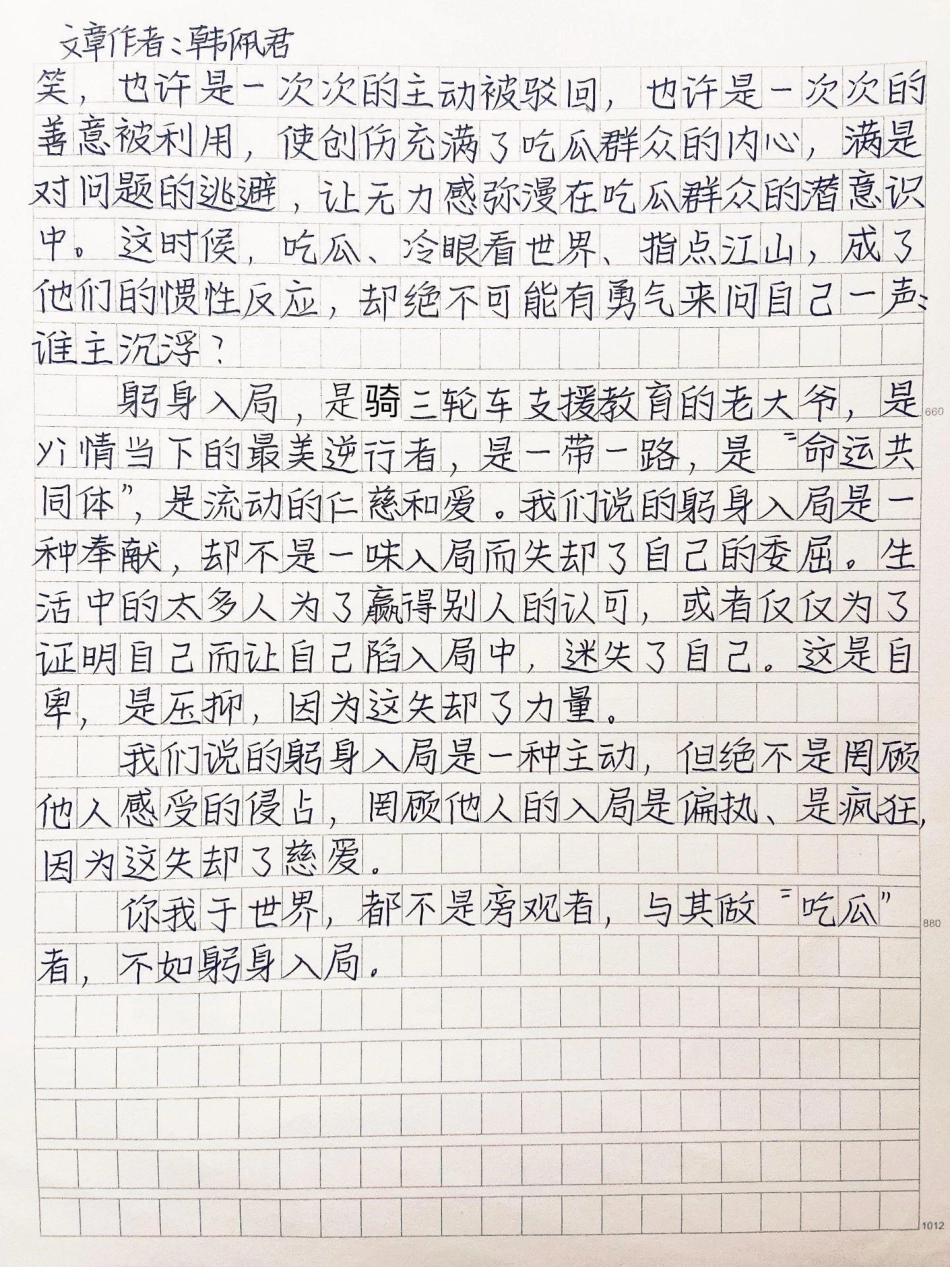 文章作者：韩佩君
笑，也许是一次次的主动被驳回，也许是一次次的
善意被利用，使创伤充满了吃瓜群众的内心，满是
对问题的逃避，让无力感弥漫在吃瓜群众的潜意识
中。这时候，吃瓜、冷眼看世界、指点江山，成了
他们的惯性反应，却绝不可能有勇气来问自己一声：
谁主沉浮？
躬身入局，是骑三轮车支援教育的老大爷，是
660
yi情当下的最美逆行者，是一带一路，是“命运共
同体”，是流动的仁慈和爱。我们说的躬身入局是一
种奉献，却不是一味入局而失却了自己的委屈。生
活中的太多人为了赢得别人的认可，或者仅仅为了
证明自己而让自己陷入局中，迷失了自己。这是自
卑，是压抑，因为这失却了力量。
我们说的躬身入局是一种主动，但绝不是罔顾
他人感受的侵占，罔顾他人的入局是偏执、是疯狂，
因为这失却了慈爱。
你我于世界，都不是旁观者，与其做“吃瓜”
880
者，不如躬身入局。
1012